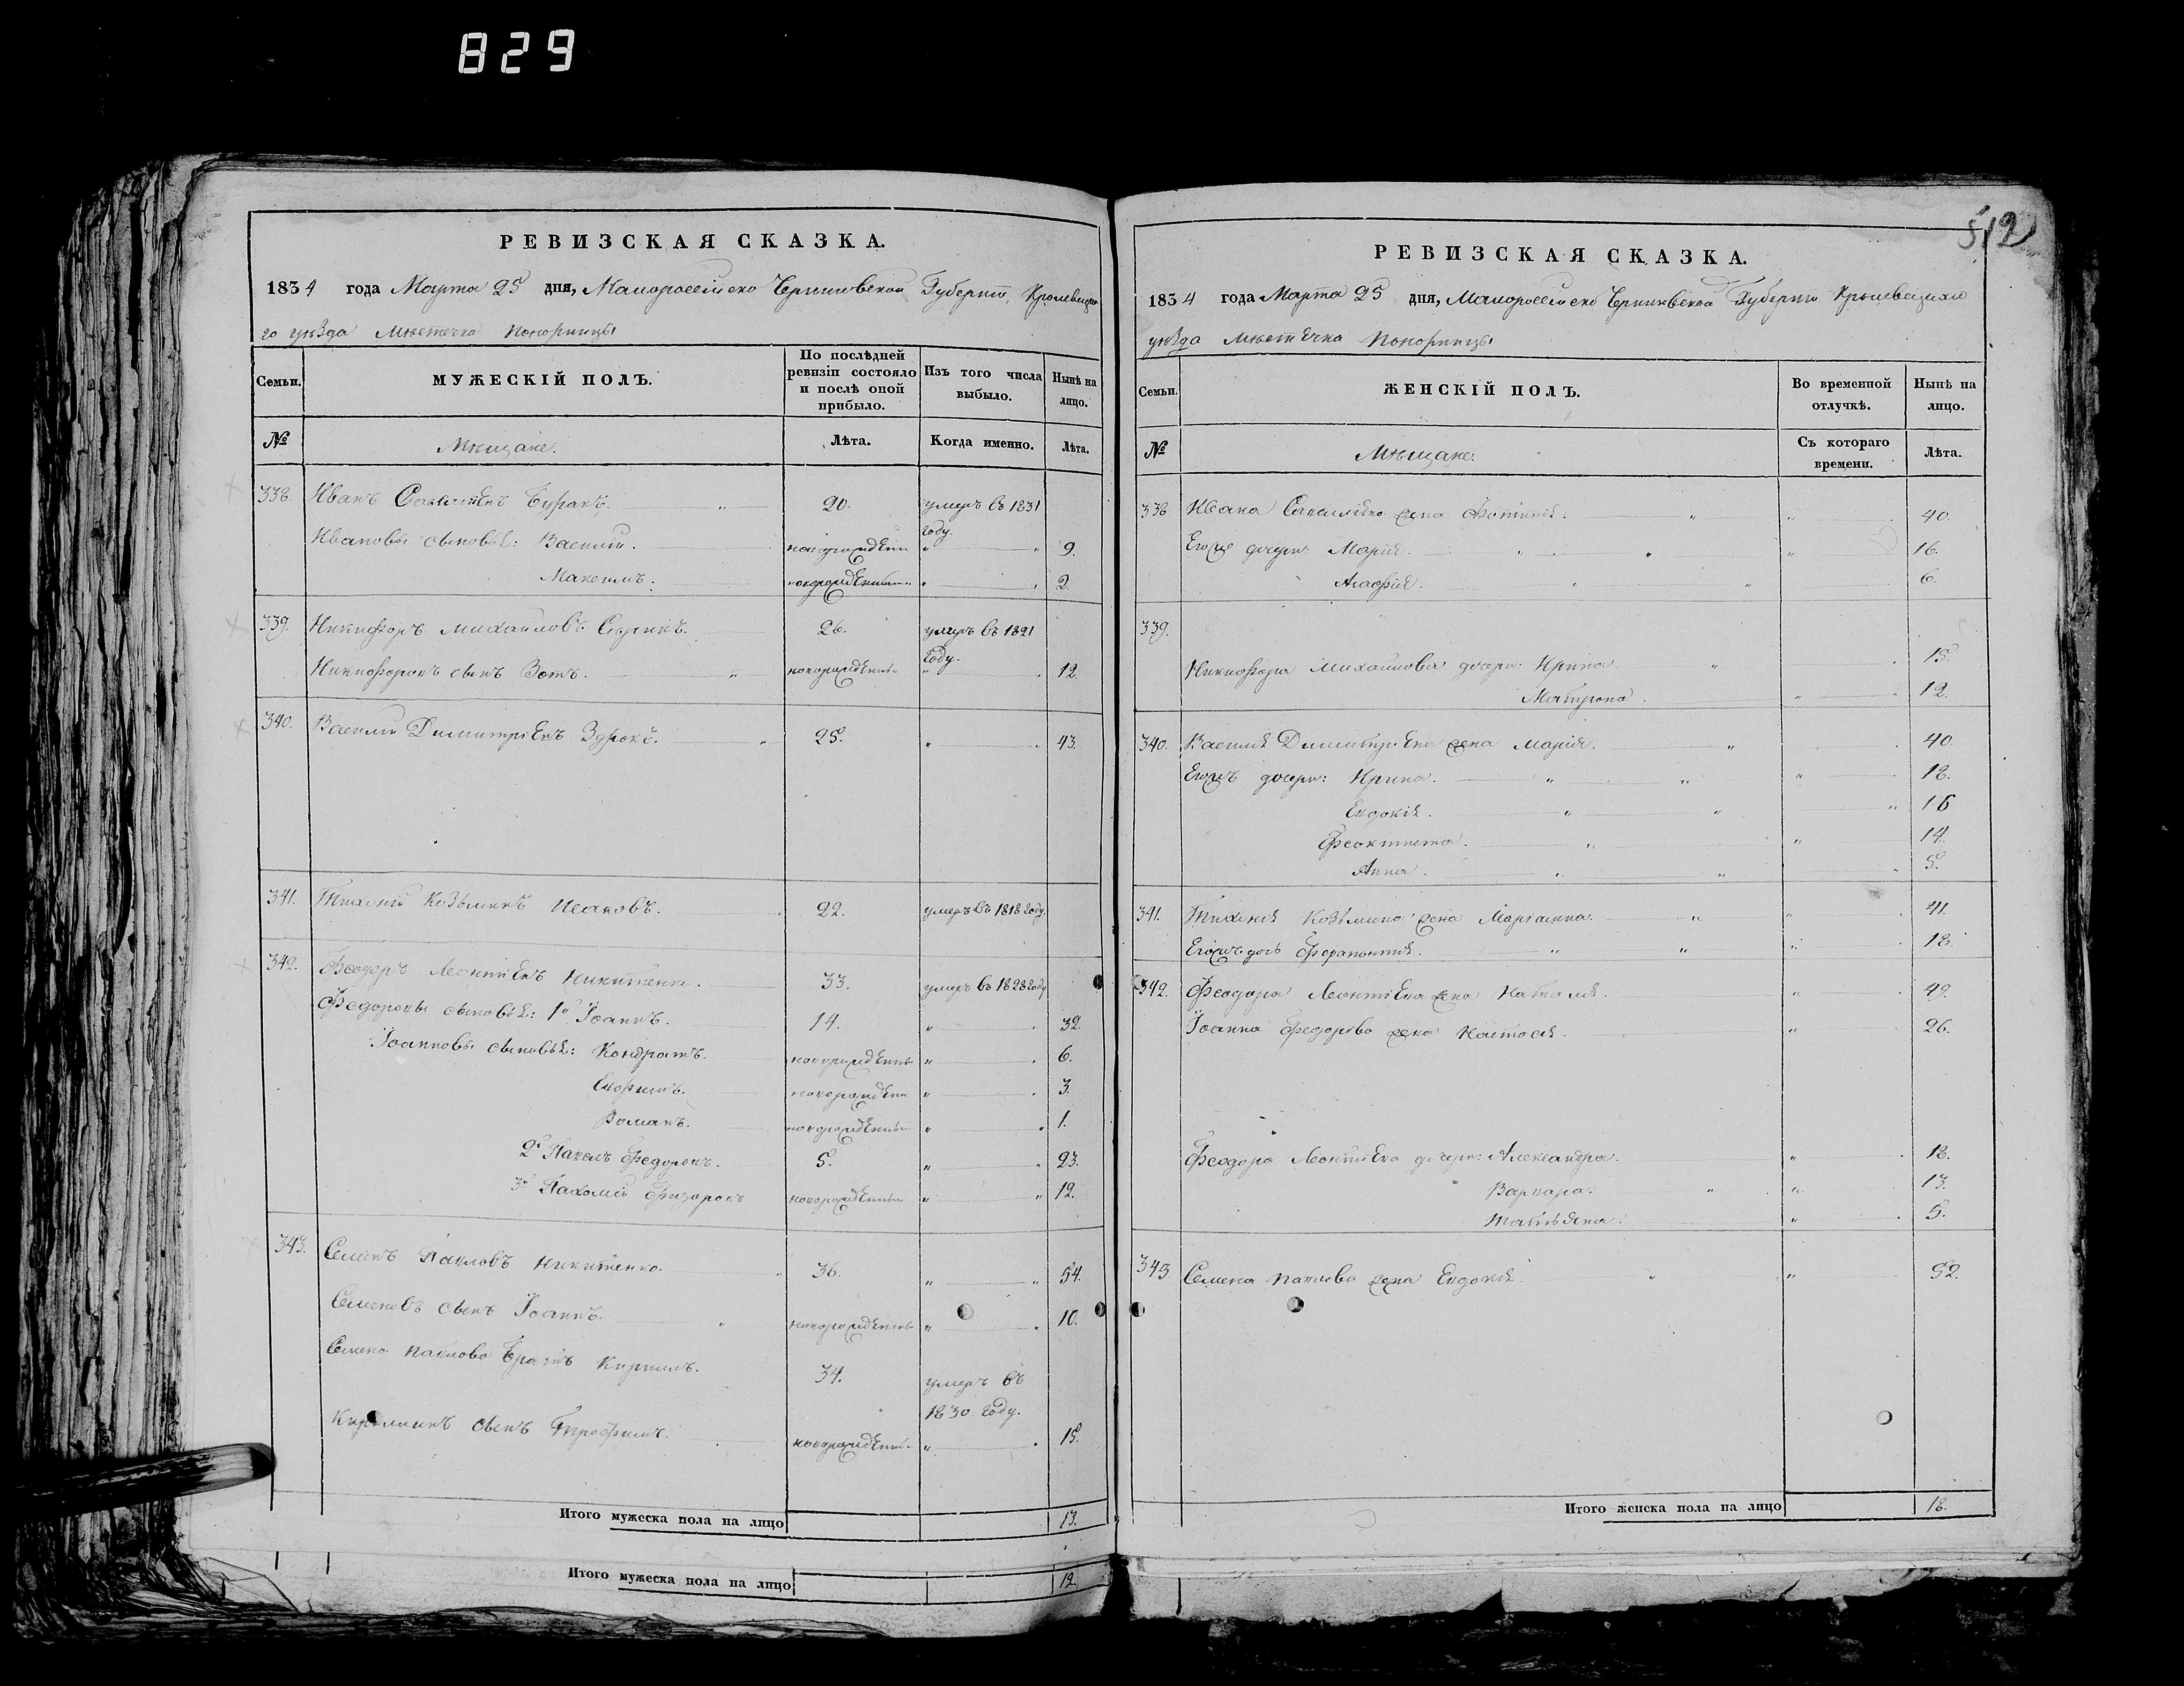 829
РЕВИЗСКАЯ СКАЗКА.
1834 года Марта 25 дня, Малороссійско Черниговской Губерніи, Кролевецка
го уѣзда Мѣстечка Понорницы
Семьи. МУЖЕСКІЙ ПОЛЪ. По послѣдней ревизіи состояло и послѣ оной прибыло. Изъ того числа выбыло. Нынѣ на лицо.
№ Мѣщане. Лѣта. Когда именно. Лѣта.
338. Иванъ 20. умеръ въ 1831 году.
Ивановы сыновья: Василій. новорожденъ " " 9.
Максимъ. новорожденный " " 2.
339. Никифоръ Михайловъ 26. умеръ въ 1821 году.
Никифоровъ сынъ Зотъ. новорожденный " 12.
340. Василій Димитріевъ 25. " " 43.
341. Тихонъ Козьминъ Исаковъ. 22. умеръ въ 1818 году.
342. Феодоръ Леонтіевъ Никитенко. 33. умеръ въ 1828 году
Федоровы сыновья: 1й Іоаннъ. 14. " " 32.
Іоанновы сыновья: Кондратъ. новорожденный " " 6.
Ефимъ. новорожден " " 3.
Романъ. новорожденный " " 1.
2й Павелъ Федоровъ. 5. " " 23.
3й Пахомій Федоровъ новорожденный " " 12.
343. Семенъ Павловъ Никитенко. 36. " " 54.
Семеновъ сынъ Іоаннъ. новорожденный " " 10.
Семена Павлова братъ Кирилъ. 34. умеръ въ
1830 году.
Кириловъ сынъ Трофимъ. новорожден. " " 15.
Итого мужеска пола на лицо 13.
Итого мужеска пола на лицо 12.
512
РЕВИЗСКАЯ СКАЗКА.
1834 года Марта 25 дня, Малороссійско Черниговской Губерніи Кролевецкаго
уѣзда Мѣстечка Понорницы
Семьи. ЖЕНСКІЙ ПОЛЪ. Во временной отлучкѣ. Нынѣ на лицо.
№ Мѣщане. Съ котораго времени. Лѣта.
338 Ивана жена Фотинія. " " 40.
Егоже дочери: Марія. " " " 16.
Агафія. " " 6.
339.
Никифора Михайлова дочери: Ирина. " 15.
Матрона. " 12.
340. Василія Димитріева жена Марія. " 40.
Егожъ дочери: Ирина. " " " 18.
Евдокія. " " " 16
Феоктиста. " " 14.
Анна. " " " 5.
341. Тихона Козьмина жена Маріанна. " " 41.
Егожъ дочь " " " 18.
342. Феодора Леонтіева жена Наталія. " 49.
Іоанна Федорова жена Настасія. " 26.
Феодора Леонтіева дочери: Александра. " 18.
Варвара. " " 13.
Татьяна. " 5.
343 Семена Павлова жена Евдокія. " " 52.
Итого женска пола на лицо 18.